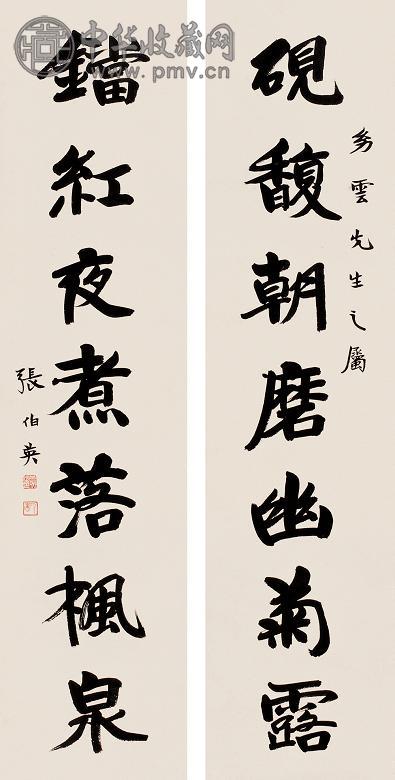 中华收藏网
www.pmv.cn
雲先生之屬
硯馥朝磨幽菊露
鐺紅夜煮落楓泉
張伯英